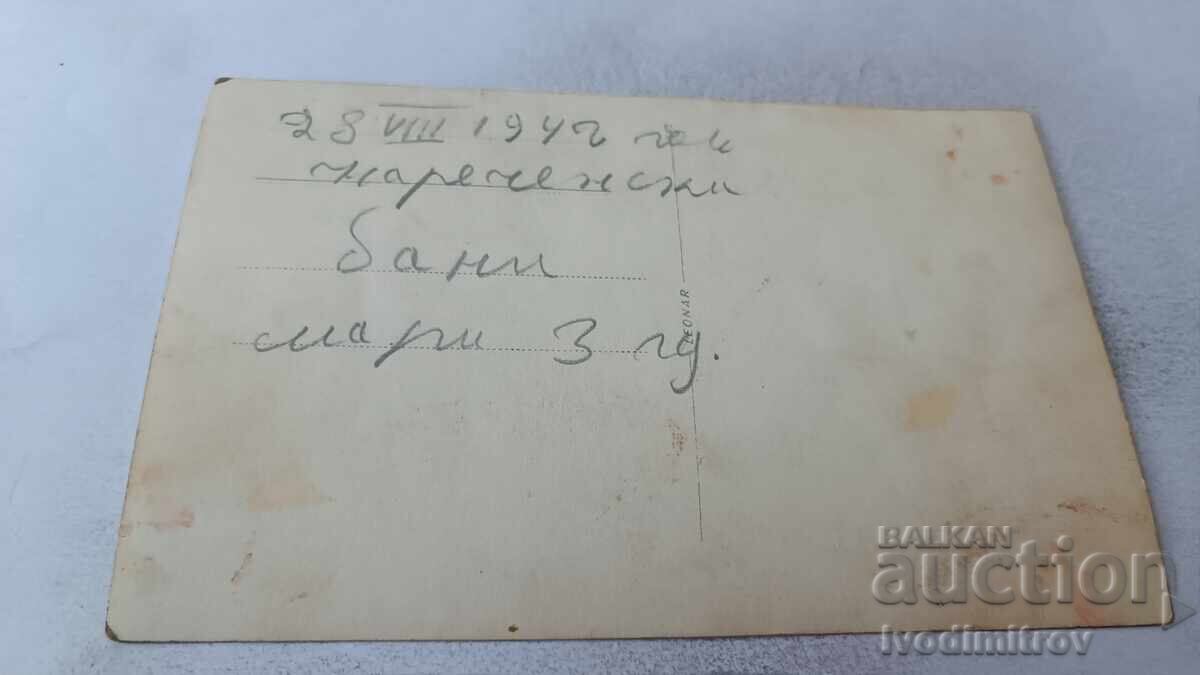 28 VIII 1942 год
нареченски
бани
мари 3 гд.
LEONAR
BALKAN
auction
Ivodimitrov